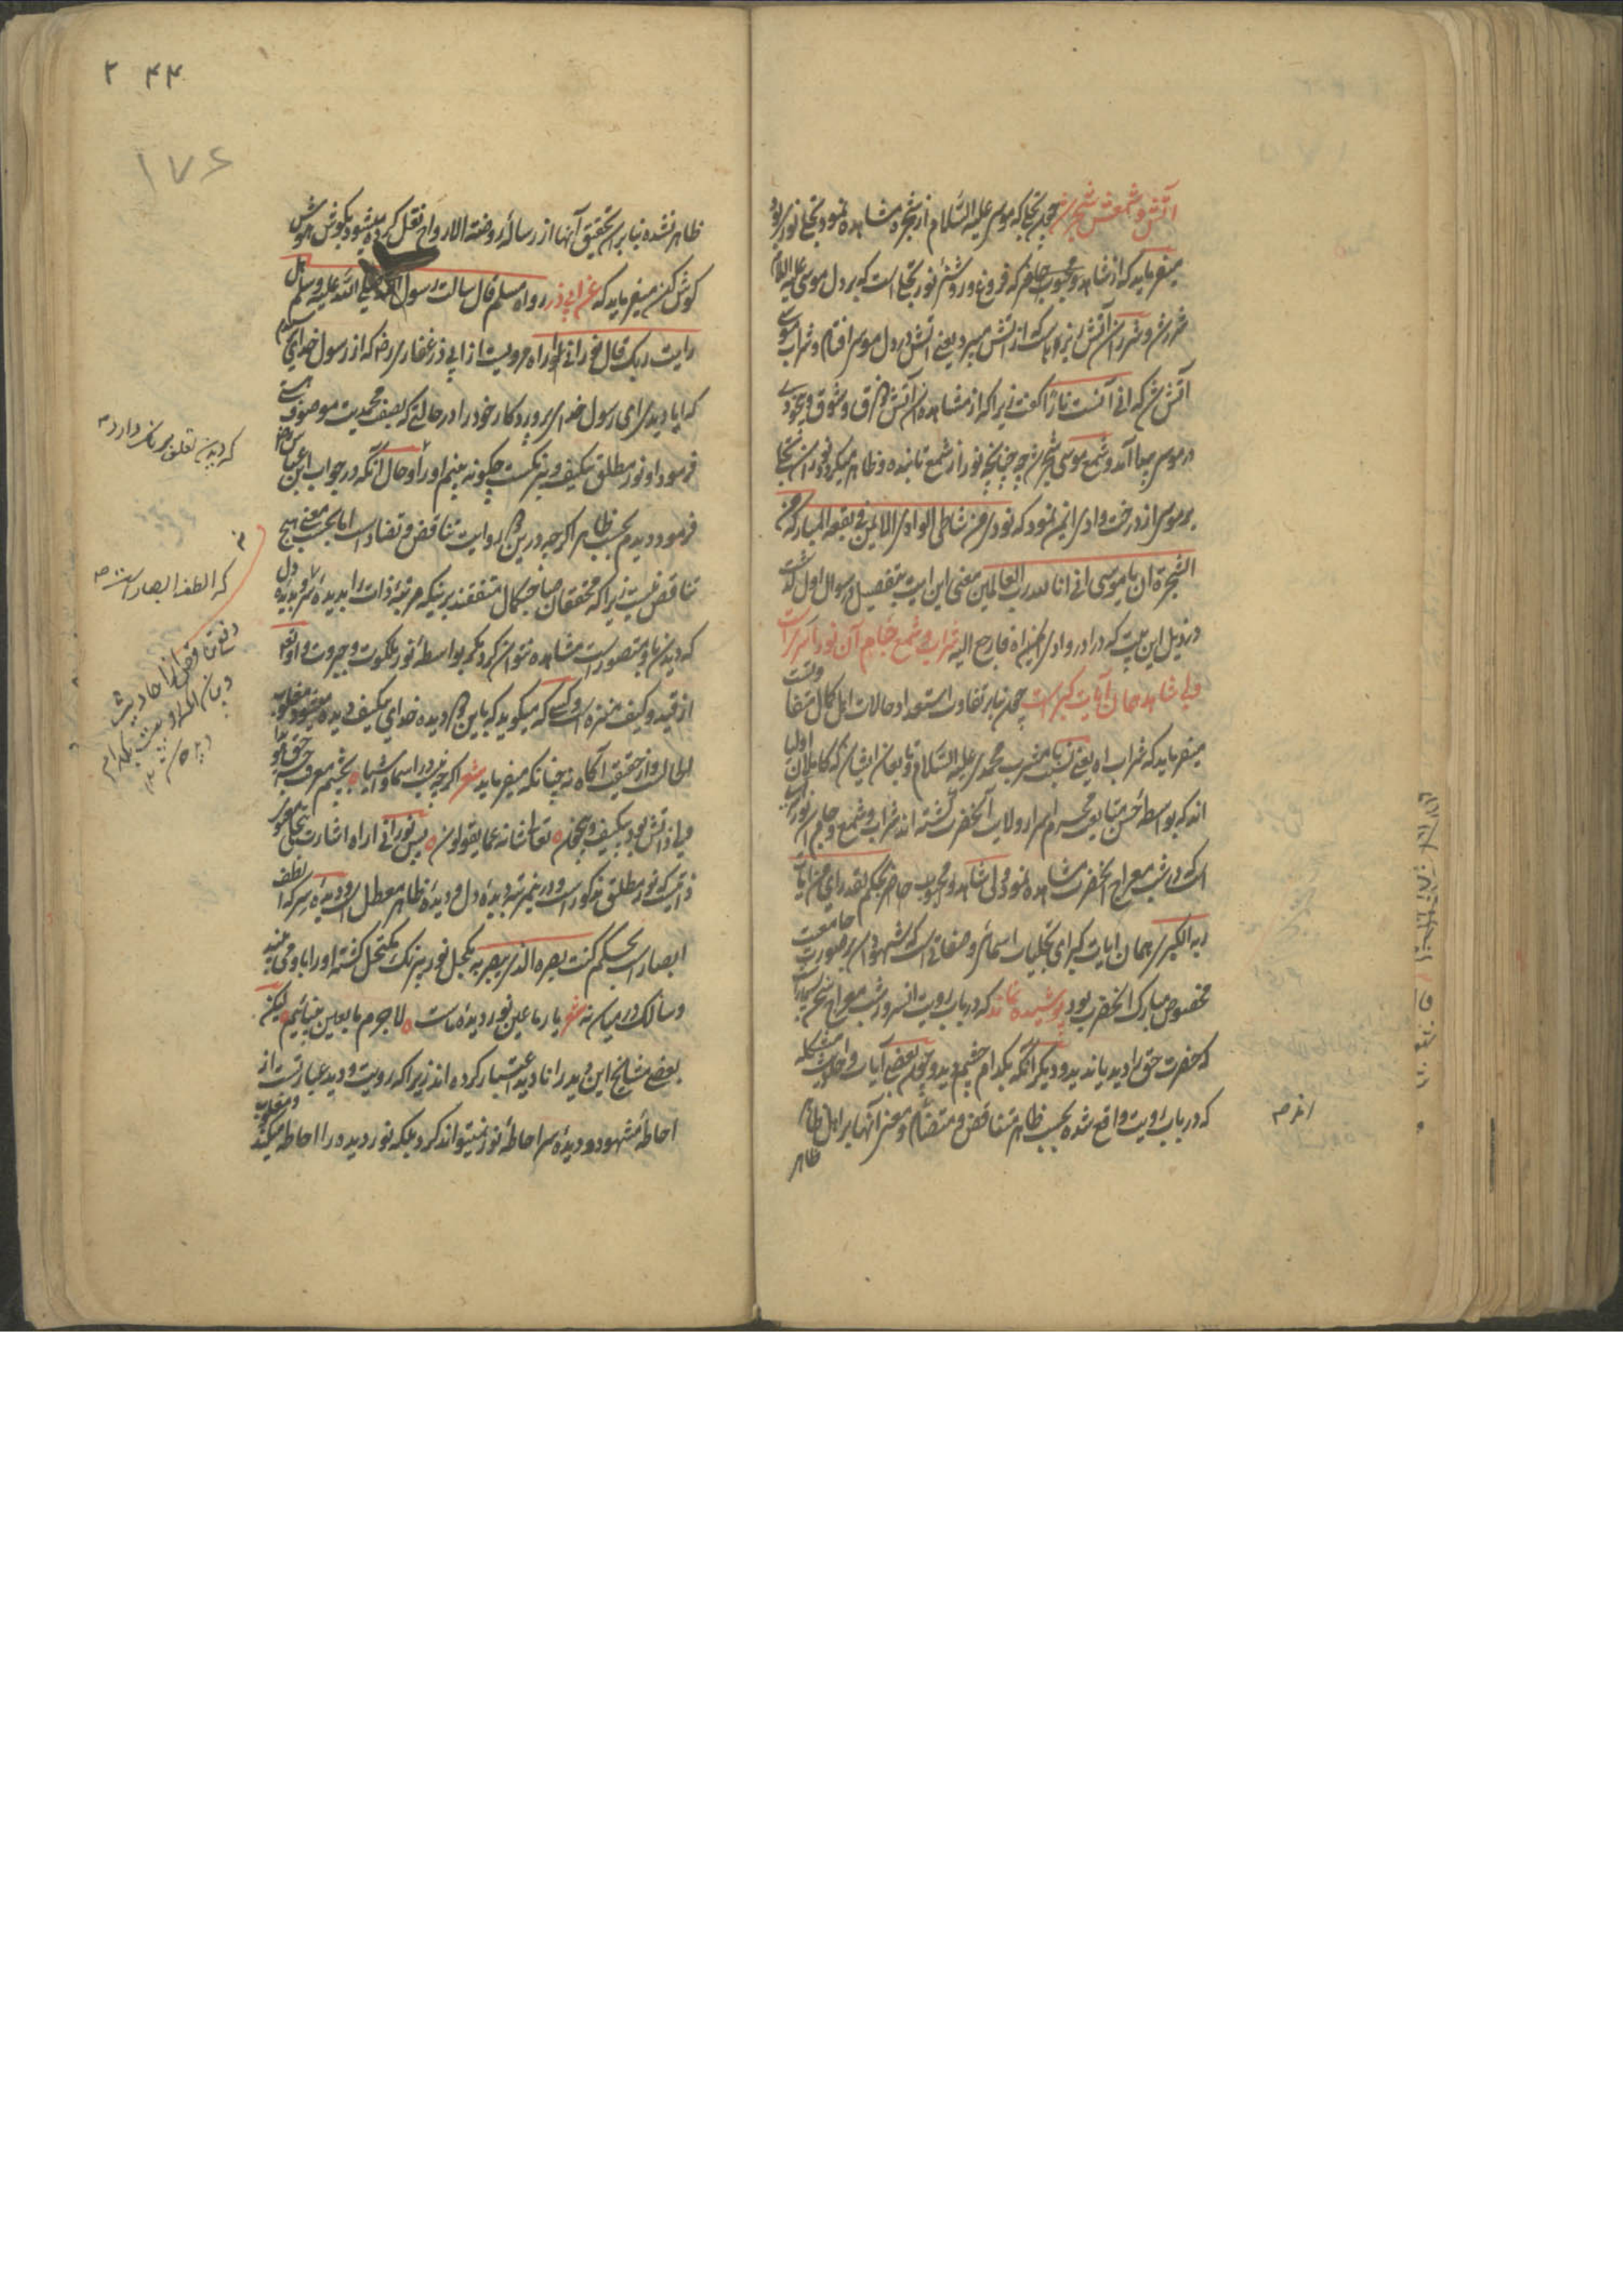 آتش و شمعش شجر شد چون تجلی که موسی علیه السّلام از شجره مشاهده نمود تجلی نوری بود
میفرماید که از شاهد و محبوب حاضر که فروغ و روشنی نور تجلی است که بر دل موسی علیه السلام
شررش و شرر آن آتش ریزه‌ها است که از آتش میپرد یعنی آتش در دل موسی افتاد و شراب موسی
آتش شد که انی آنست نارا گفت زیرا که از مشاهده آن آتش ذوق و شوق و بیخودی
در موسی پیدا آمد و شمع موسی شجر شد چه چنانچه نور از شمع تابنده و ظاهر میگردد نور آن تجلی
بر موسی از درخت وادی ایمن نمود که نودی من شاطئ الوادی الایمن فی البقعه المبارکه من
الشجرة ان یا موسی انی انا الله رب العالمین معنی این آیت بتفصیل در سوال اول گذشت
در ذیل این بیت که درآ در وادی ایمن فارجع الیه شراب و شمع جام آن نور اسری است
ولی شاهد همان آیات کبری است چون بنابر تفاوت استعداد حالات اهل کمال متفاوتست
میفرماید که شراب اه یعنی نسبت با مشرب محمدی علیه السّلام و تابعان ایشان که کاملان اولیا
اند که بواسطه حسن متابعت محرم اسرار ولایت آنحضرت گشته اند شراب و شمع و جام آن نور اسری
است که در شب معراج آنحضرت مشاهده نمود ولی شاهد و محبوب حاضر بحکم لقد رای من آیات
ربه الکبری همان آیات کبرای تجلیات اسمائی و صفاتی است که شهود آن بر صورت جامعیت
مخصوص مبارک آنحضرت بود پوشیده نماند که در باب رویت آنسرور شب معراج سخن بسیار است
که حضرت حق را دید یا ندید و دیگر آنکه بکدام چشم دید و چون بعضی آیات و احادیث مشکله
که در باب رویت واقع شده بحسب ظاهر متناقض و متضاد و معنی آنها بر اهل ظاهر
ظاهر
اند صح
۲ ۴۴
۱۷۶
ظاهر نشده بنابر آن تحقیق آنها از رساله روضة الارواح نقل کرده میشود بگوش هوش
گوش کن میفرماید که عن ابی ذر رواه مسلم قال سالت رسول الله صلی الله علیه وسلم هل
رایت ربک قال نور انی اراه مرویست از ابی ذر غفاری رض که از رسول خدای پرسیدم
که ایا دیدی ای رسول خدا پروردگار خود را در حالتی که بصفت محمدیت موصوف هستی
فرمود او نور مطلق بیکیف و بیرنگست چگونه بینم او را و حال آنکه در جواب ابن عباس رض
فرمود دیدم بحسب ظاهر اگرچه درین دو روایت تناقض و تضاد است اما بحسب معنی هیچ
تناقض نیست زیرا که محققان صاحب کمال متفقند برینکه مرتبه ذات را بدیده سر و بدیده دل
که دیدن باو متصور است مشاهده نتوان کرد مگر بواسطه نور ملکوت و جبروت و او تع
از قید و کیف منزه است و کسی که میگوید که باین دو دیده خدای بیکیف دیده میشود مغلوب
الحالست و از حقیقت آگاه نه چنانکه میفرماید شعر اگرچه نزد در اسما و اشیاء بچشم معرفت حق
ولی ذاتش بود بیکیف و بیچون تعالی شانه عما یقولون پس نور انی اراه اشارت بتجلی نور
ذاتیست که نور مطلق مذکور است و درینمرتبه دیده دل و دیده ظاهر معطل است و دیده سر که الطف
ابصار است بحکم کنت بصره الذی یبصر به بکحل نور بیرنگ مکتحل گشته او را باو می بیند
و سالک در میان نه شعر یار ما عین نور دیده ماست لاجرم ما بعین بینائیم لیکن
بعضی مشایخ این دید را نادید اعتبار کرده اند زیرا که رویت و دید عبارت از
احاطه مشهود و دیده سر احاطه نور نمیتواند کرد بلکه نور دیده را احاطه میکند
که دیدن تعلق بزمان دارد
که الطف ابصار است صح
دفع تناقض از احادیث
و بیان آنکه رویت بکدام